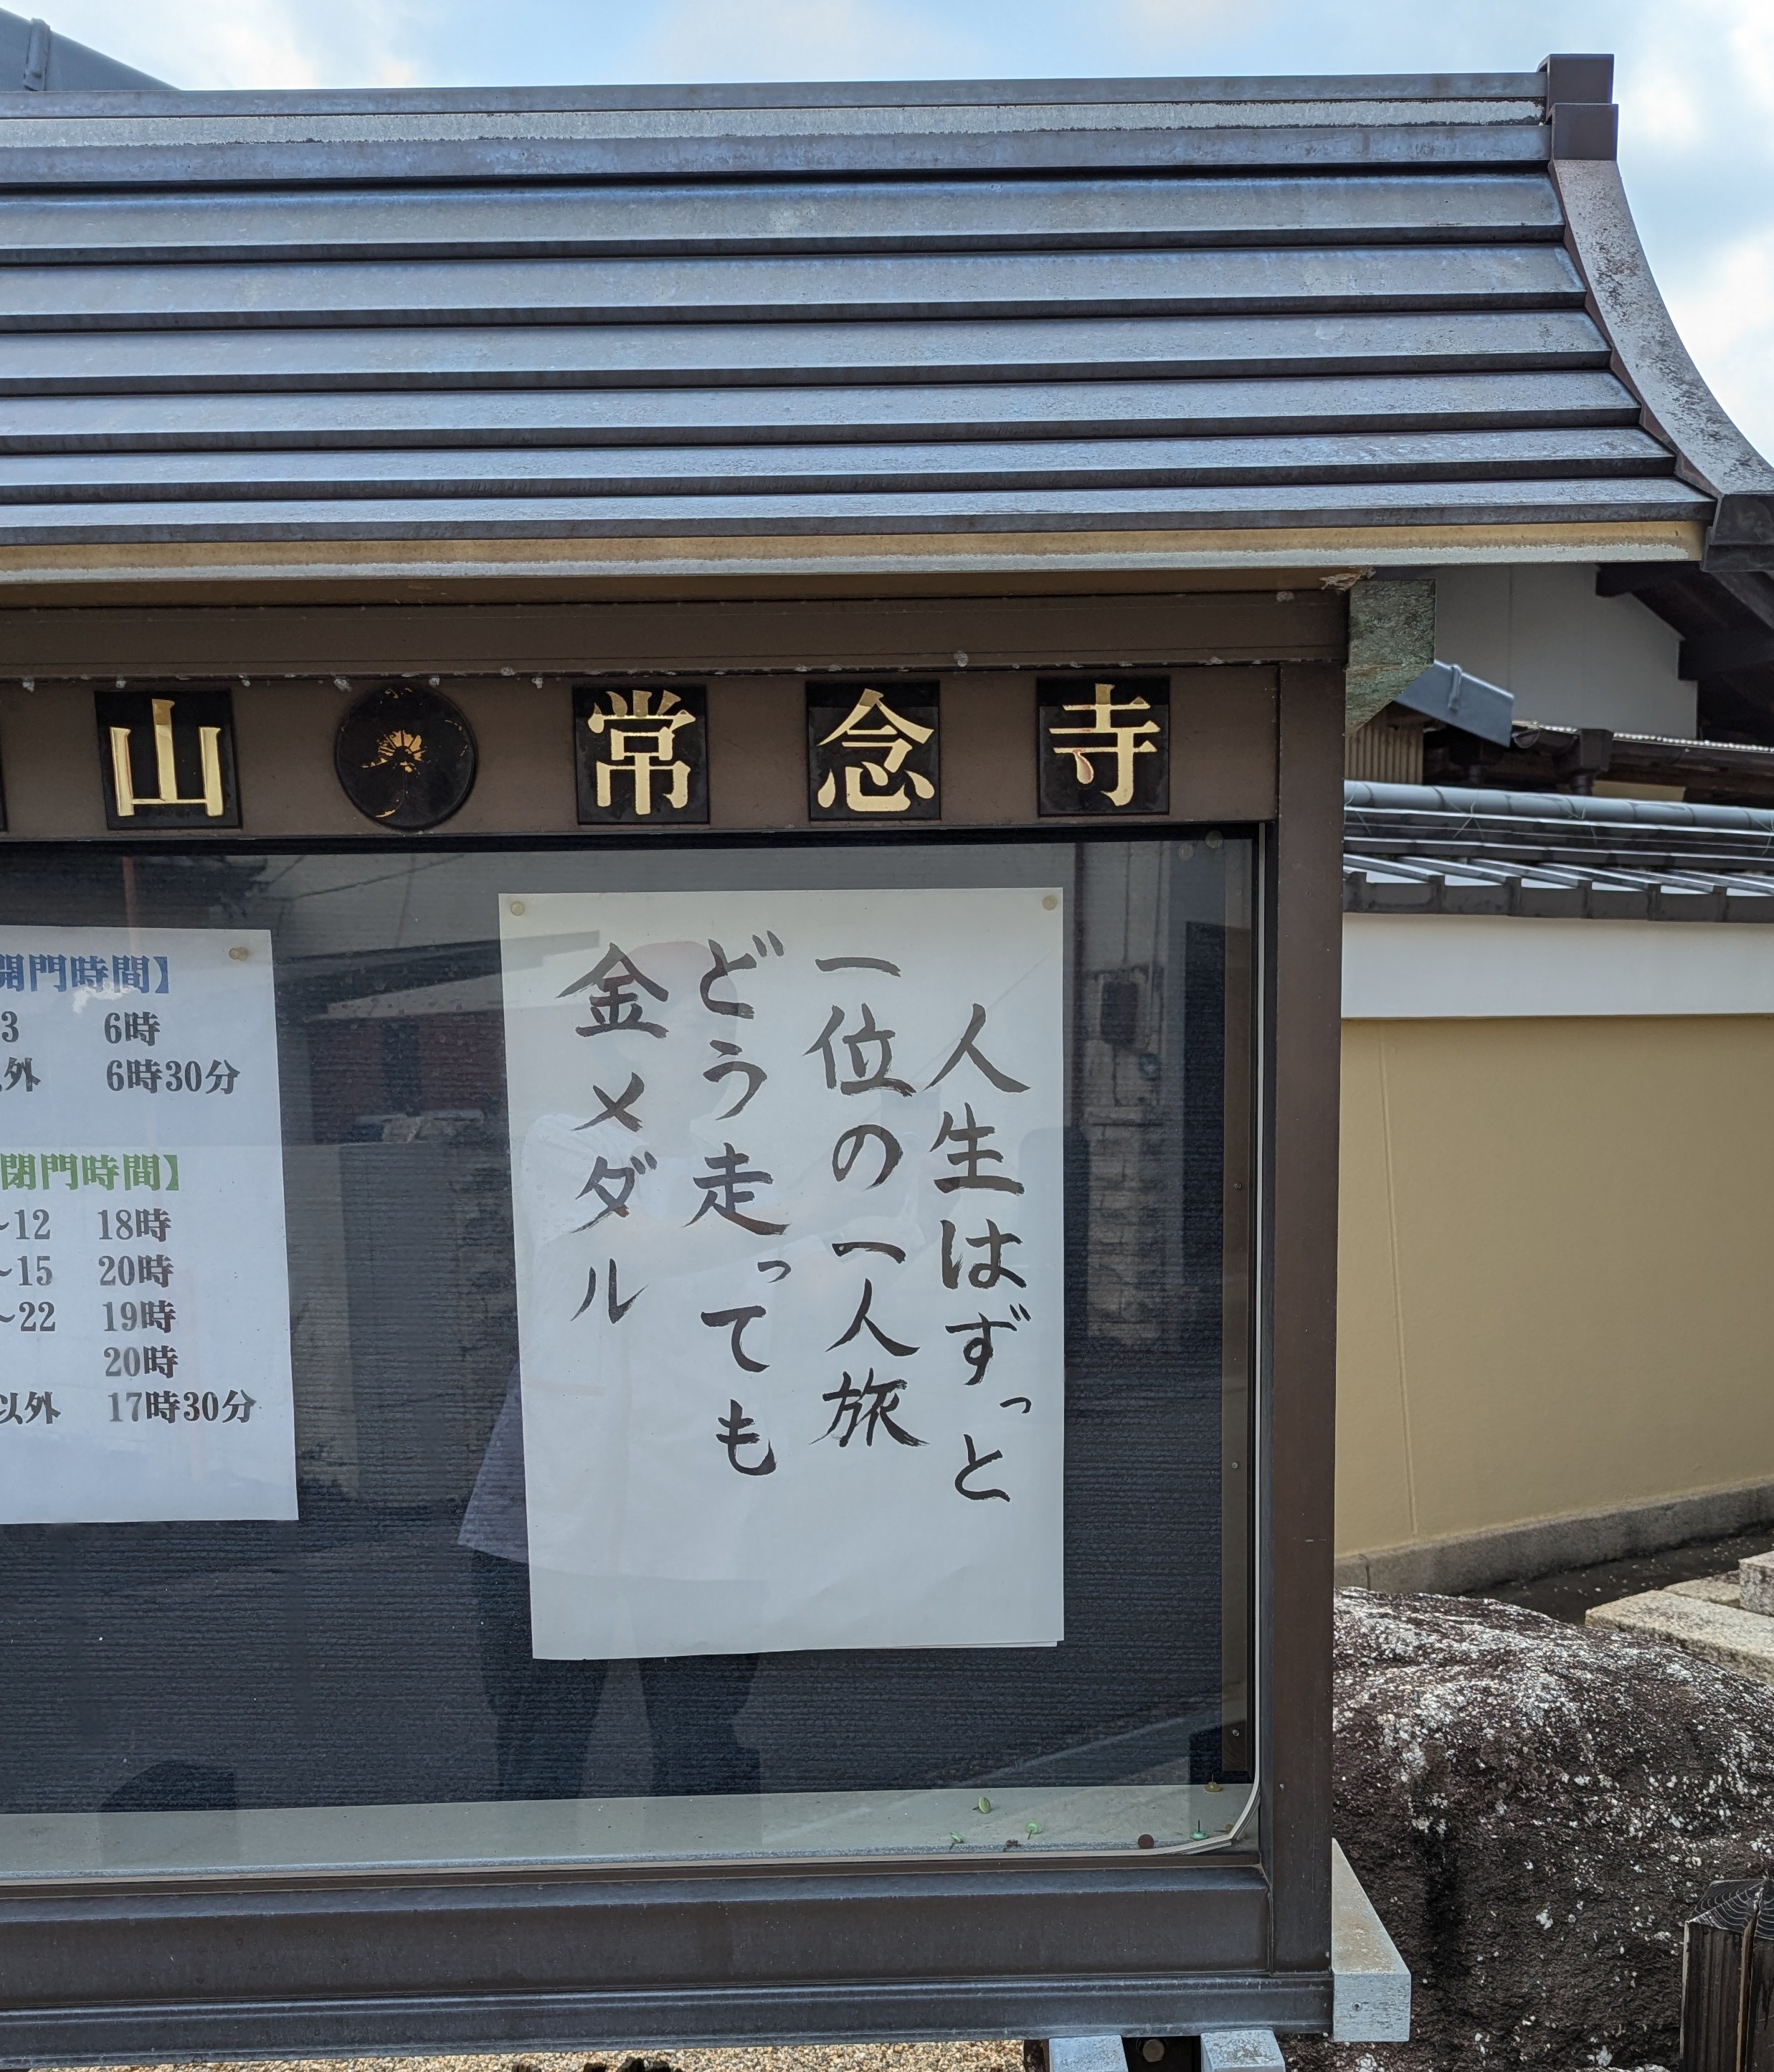 山 常念寺
人生はずっと
一位の一人旅
どう走っても
金メダル
開門時間】
3 6時
外 6時30分
閉門時間】
~12 18時
~15 20時
~22 19時
20時
以外 17時30分